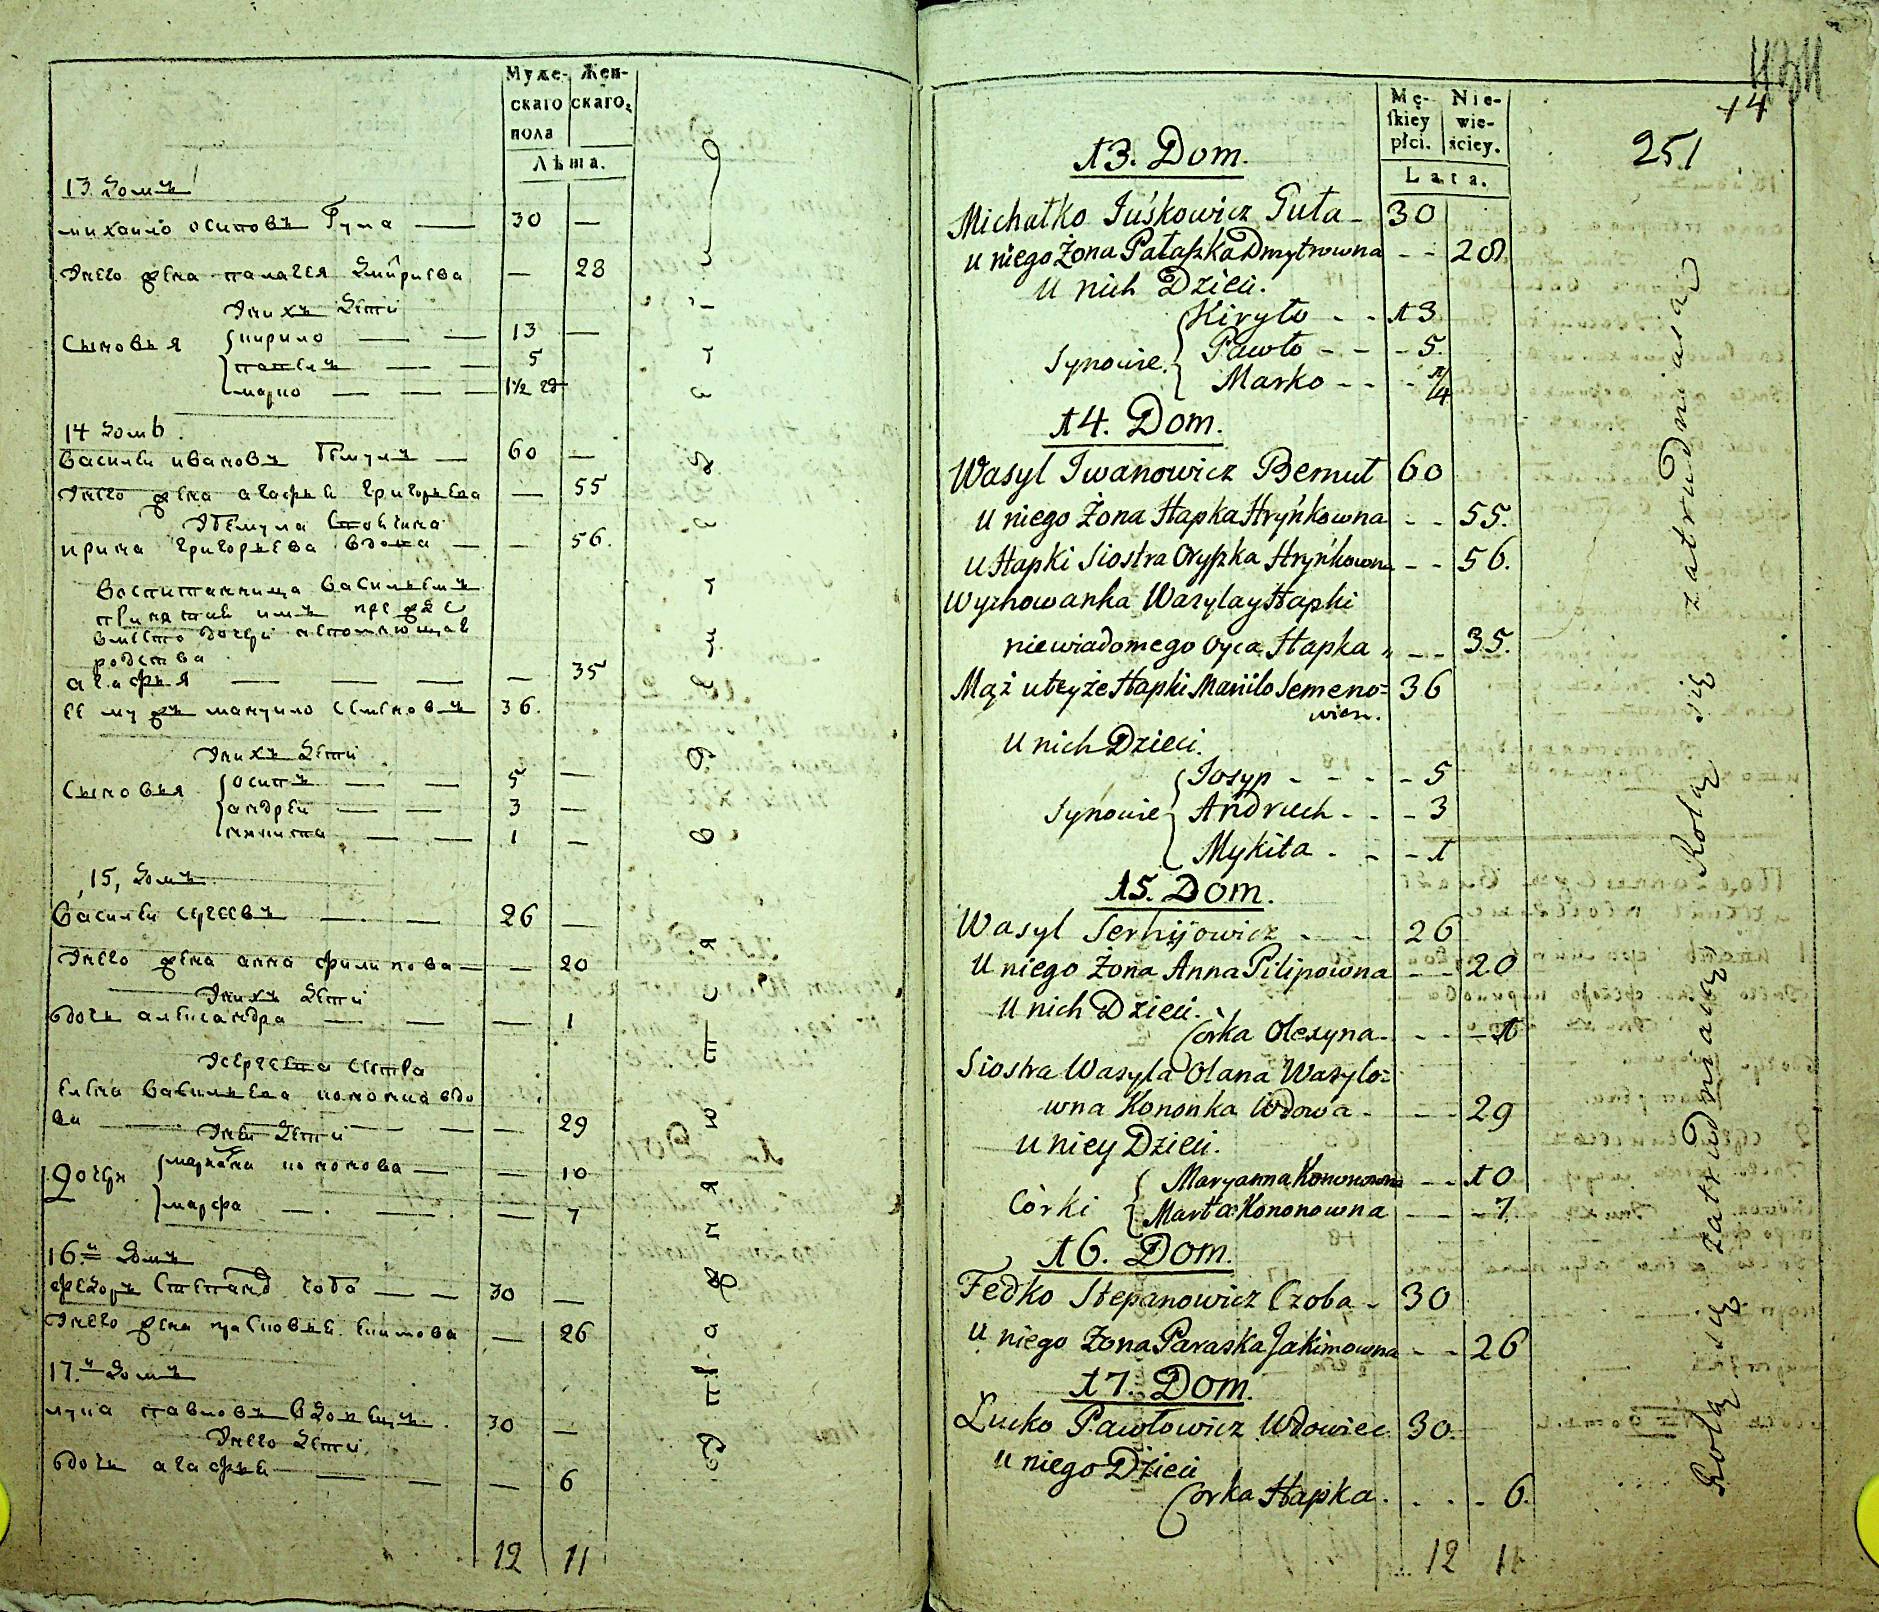 Муже-
скаго
пола
Жен-
скаго,
Лѣта.
13. домъ
михайло осиповъ Гута — 30 —
Унего жена палагея дмитриева — 28
Унихъ дети
Сыновья
кирило — — 13 —
павелъ — — 5
марко — — — 1½ 
14 домъ
Василеи ивановъ Бемутъ — 60 —
Унего жена агафья григорьева — 55
ирина григорьева вдова — — 56.
Воспитанница васильемъ
вместо дочери
родства
агафья — — — — 35
ее мужъ мануило семеновъ 36.
Унихъ дети
Сыновья
осипъ — — 5 —
андреи — — 3 —
никита — — 1 —
15, домъ
Василеи сергеевъ — — 26 —
Унего жена анна филипова — — 20
Унихъ дети
дочь александра — — — 1
Усергеева сестра
елена васильева кононка вдо
ва — — — — 29
Унеи дети
Дочери
марьяна кононова — — 10
марфа — — — 7
16.й домъ
федоръ степановъ чоба — — 30 —
Унего жена прасковья екимова — 26
17.й домъ
лука павловъ вдовецъ. 30 —
Унего дети
дочь агафья — — — 6
12 11
14
251
Mę-
skiey
płci.
Nie-
wie-
ściey.
Lata.
13. Dom.
Michałko Juśkowicz Guta - 30
u niego Żona Pałaszka Dmytrowna - - 28
u nich Dzieci.
Synowie.
Kiryło - - 13
Pawło - - - 5.
Marko - - - ¼
14. Dom.
Wasyl Iwanowicz Bemut 60
u niego Żona Hapka Hryńkowna - - 55.
u Hapki Siostra Oryszka Hryńkowna - - 56.
Wychowanka Wasyla y Hapki
niewiadomego Oyca Hapka - - 35.
Mąż uteyże Hapki Manilo Semeno= 36
wicz.
u nich Dzieci.
Synowie
Josyp - - - - 5
Andruch - - - 3
Mykita - - - 1
15. Dom.
Wasyl Serhijowicz - - 26
U niego Żona Anna Pilipowna - - 20
u nich Dzieci.
Córka Olexyna - - - 1
Siostra Wasyla Olana Wasylo=
wna Kononka Wdowa - - - 29
u niey Dzieci.
Córki
Maryanna Kononowna - - 10
Marta Kononowna - - - 7.
16. Dom.
Fedko Stepanowicz Czoba - 30
u niego Żona Paraska Jakimowna - - 26
17. Dom.
Łucko Pawłowicz Wdowiec. 30.
u niego Dzieci
Córka Hapka. . . . - 6.
12 11
Rolą się zatrudniaią Rolą się zatrudniaią